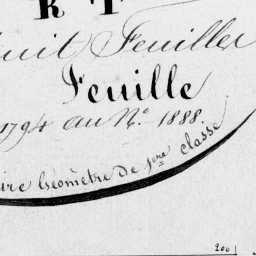 R T
uit Feuilles
Feuille
1794 au N.° 1888.
ire Géomètre de 1ère classe
200